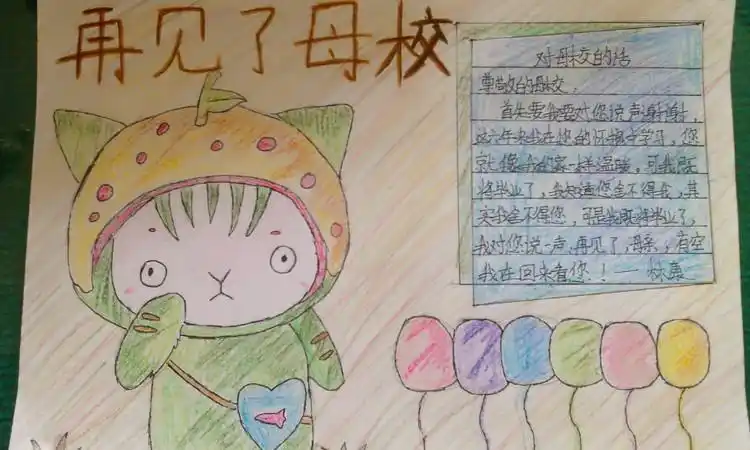 再见了母校
对母校的话
尊敬的母校，
首先要我要对您说声谢谢，
这六年来我在您的怀抱中学习，您
就像我的家一样温暖，可我既
将毕业了，我知道您舍不得我，其
实我舍不得您，可是我既将毕业了，
我对您说一声，再见了，母亲，有空
我在回来看您！——林